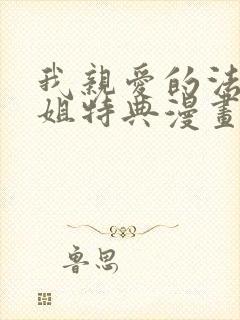 我親愛的法
姐特典漫畫
魯思